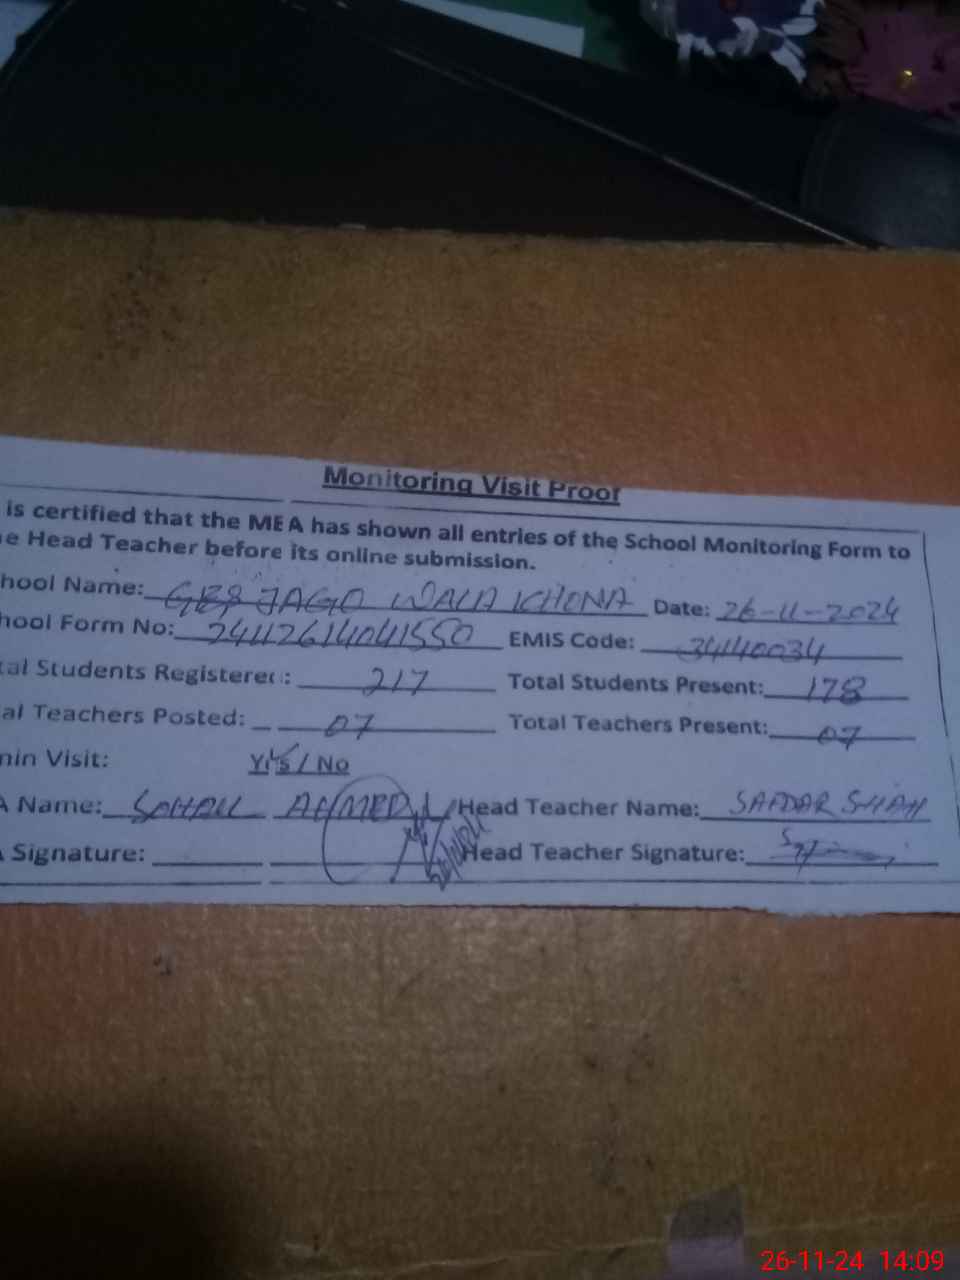 Monitoring Visit Proof
is certified that the MEA has shown all entries of the School Monitoring Form to
e Head Teacher before its online submission.
hool Name: JAGO WALA KHONA Date: 26-11-2024
hool Form No: 24112614041550 EMIS Code: 34140034
tal Students Registered: 217 Total Students Present: 178
al Teachers Posted: 07 Total Teachers Present: 07
min Visit: Yes / No
A Name: SOHAIL AHMED Head Teacher Name: SAFDAR SHAH
Signature: Head Teacher Signature:
26-11-24 14:09